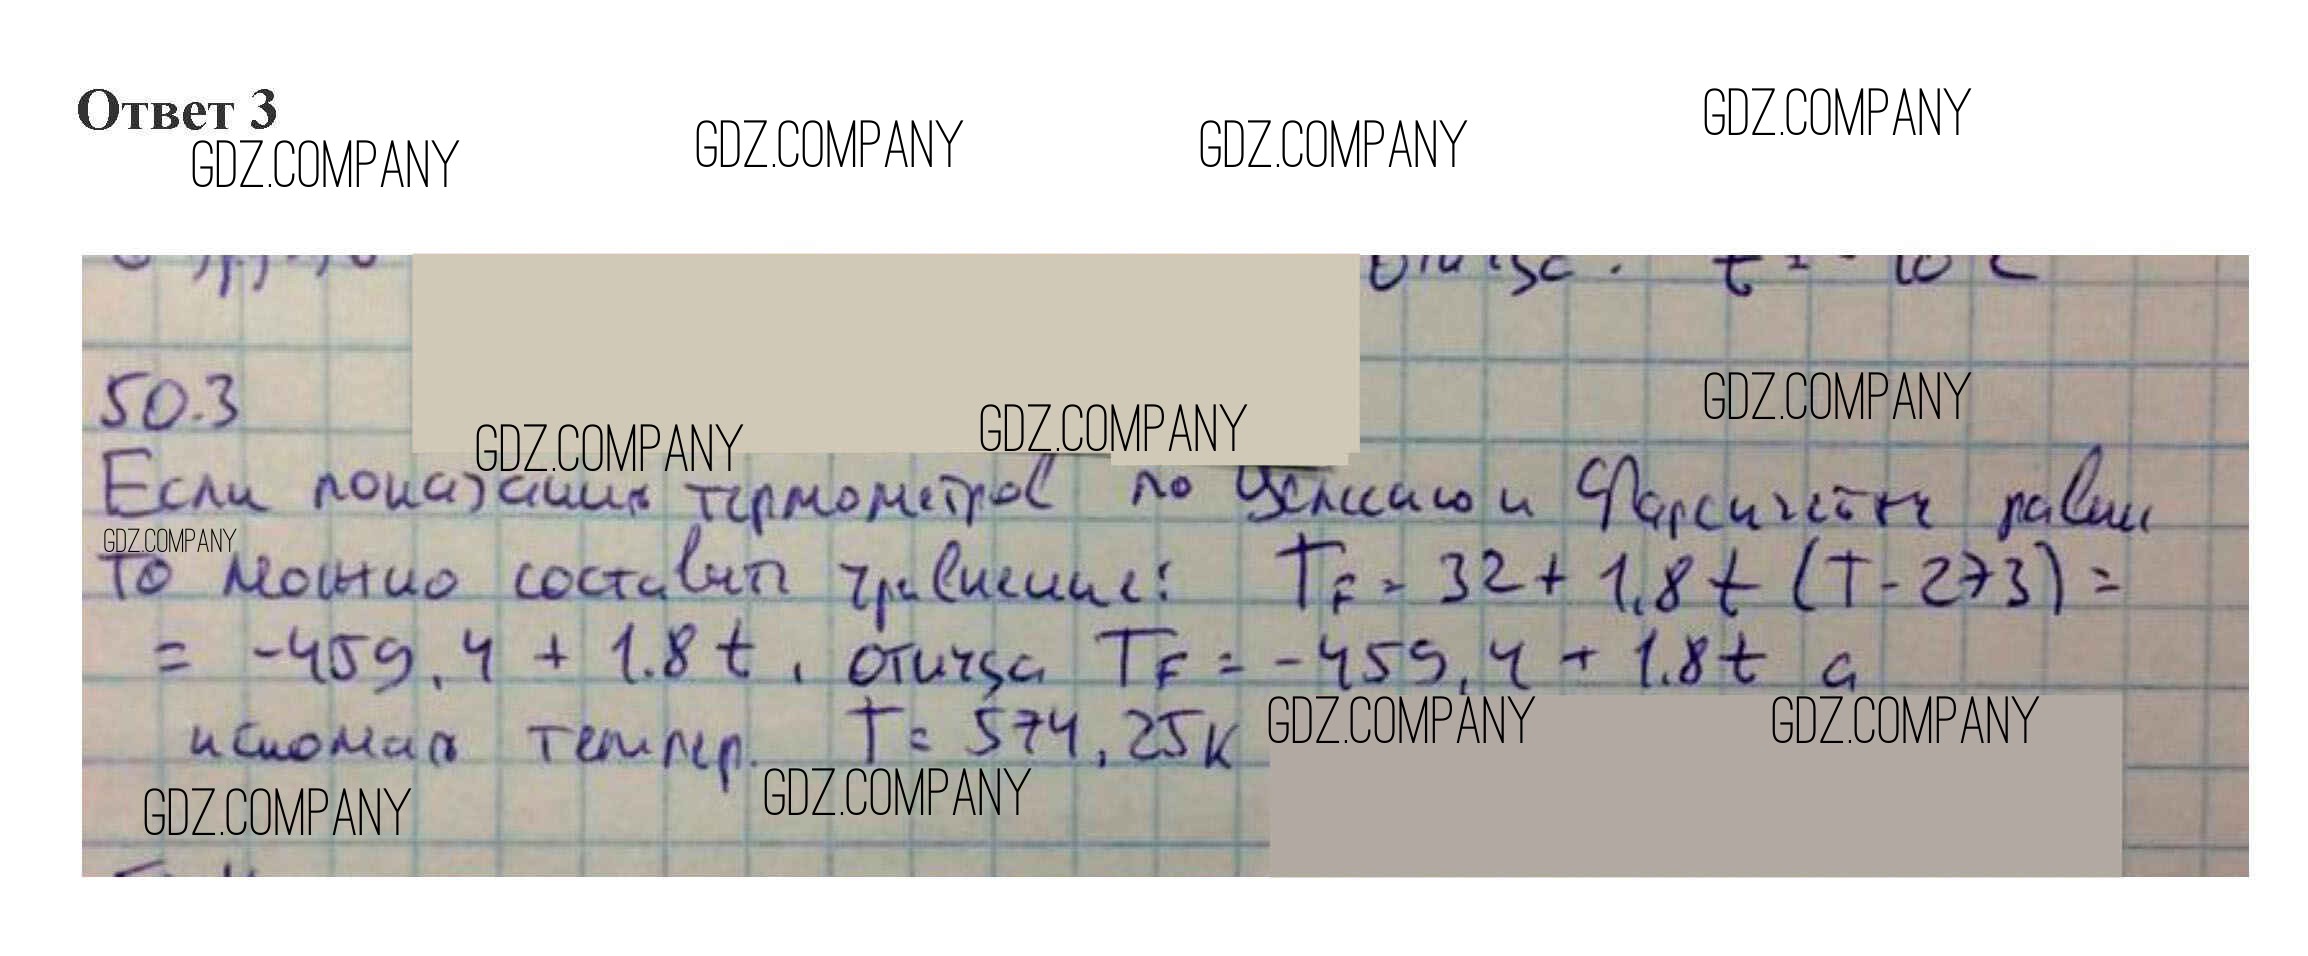 Ответ 3
GDZ.COMPANY GDZ.COMPANY GDZ.COMPANY GDZ.COMPANY
50.3
GDZ.COMPANY GDZ.COMPANY GDZ.COMPANY
Если показания термометров по Цельсию и Фаренгейту равны
GDZ.COMPANY
то можно составить уравнение: T_F = 32 + 1,8 t (T - 273) =
= -459,4 + 1.8 t, откуда T_F = -459,4 + 1.8 t а
искомая темпер. T = 574,25 К
GDZ.COMPANY GDZ.COMPANY
GDZ.COMPANY GDZ.COMPANY